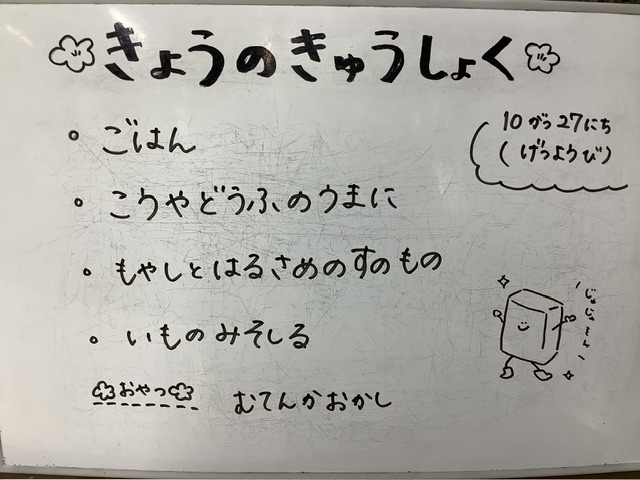 きょうのきゅうしょく
10がつ27にち
(げつようび)
。ごはん
。こうやどうふのうまに
。もやしとはるさめのすのもの
。いものみそしる
おやつ むてんかおかし